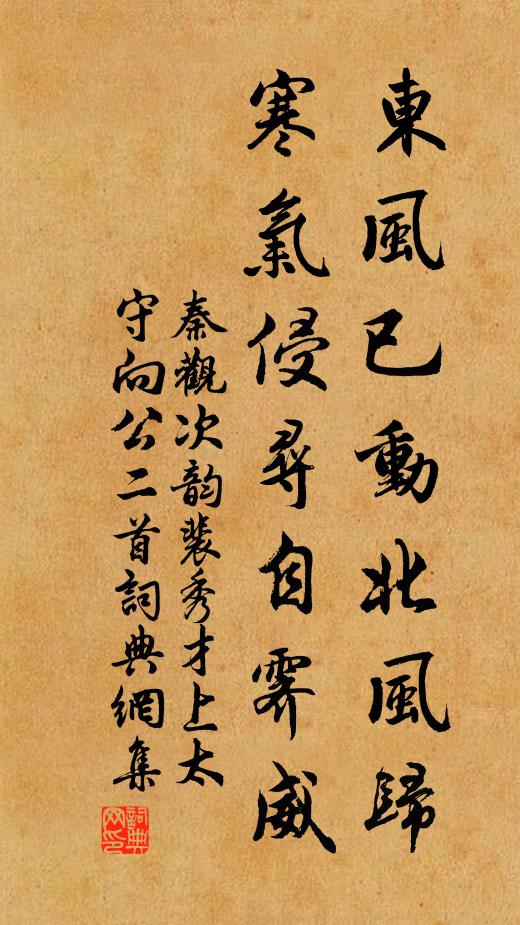 東風已動北風歸
寒氣侵尋自霽威
秦觀次韵裴秀才上太
守向公二首詞典網集
詞典
网印